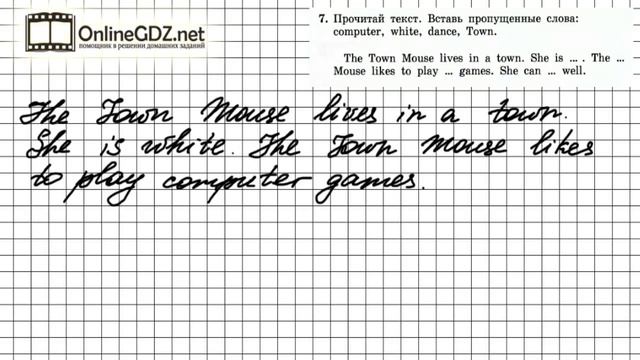 OnlineGDZ.net
помощник в решении домашних заданий
7. Прочитай текст. Вставь пропущенные слова:
computer, white, dance, Town.
The Town Mouse lives in a town. She is ... . The ...
Mouse likes to play ... games. She can ... well.
The Town Mouse lives in a town.
She is white. The Town Mouse likes
to play computer games.